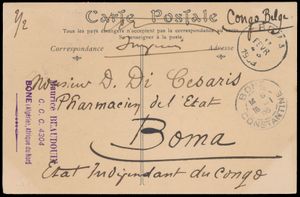 2/2
Congo Belge
Carte Postale
Tous les pays étrangers n'acceptent pas la correspondance
Se renseigner à la poste
Correspondance
Adresse
Monsieur D. Di Cesaris
Pharmacien del Etat
Boma
Etat Indépendant du Congo
Maurice BEAUDOUIN
C. C. C. 4204
BONE (Algérie) Afrique du Nord
BONE
CONSTANTINE